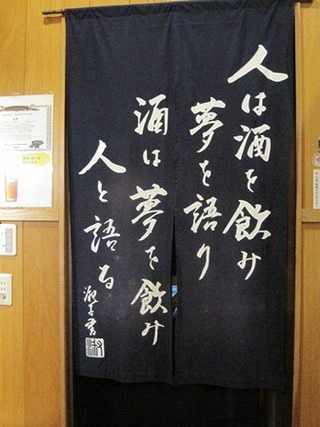 人は酒を飲み
夢を語り
酒は夢を飲み
人と語る